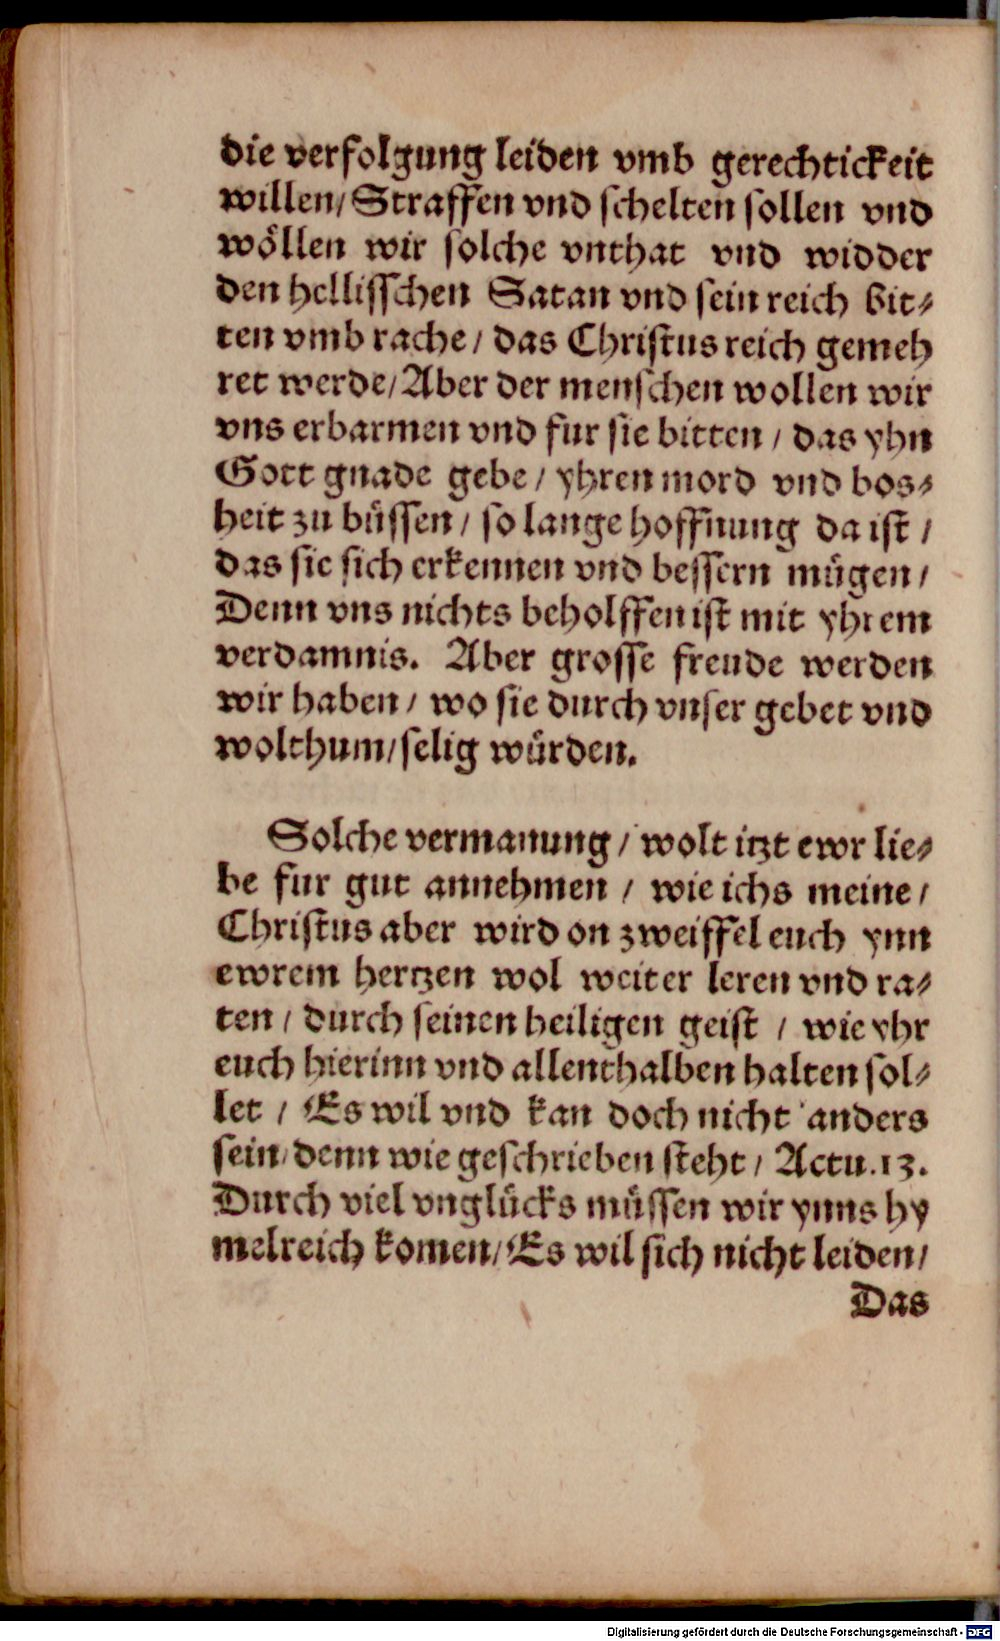 die verfolgung leiden vmb gerechtickeit
willen/ Straffen vnd schelten sollen vnd
wöllen wir solche vnthat vnd widder
den hellisschen Satan vnd sein reich bit⸗
ten vmb rache / das Christus reich gemeh
ret werde/ Aber der menschen wollen wir
vns erbarmen vnd fur sie bitten / das yhn
Gott gnade gebe / yhren mord vnd bos⸗
heit zu büssen / so lange hoffnung da ist /
das sie sich erkennen vnd bessern mügen /
Denn vns nichts beholffen ist mit yhrem
verdamnis. Aber grosse freude werden
wir haben / wo sie durch vnser gebet vnd
wolthum/ selig würden.
Solche vermanung / wolt itzt ewr lie⸗
be fur gut annehmen / wie ichs meine /
Christus aber wird on zweiffel euch ynn
ewrem hertzen wol weiter leren vnd ra⸗
ten / durch seinen heiligen geist / wie yhr
euch hierinn vnd allenthalben halten sol⸗
let / Es wil vnd kan doch nicht anders
sein/ denn wie geschrieben steht / Actu. 13.
Durch viel vnglücks müssen wir ynns hy
melreich komen/ Es wil sich nicht leiden /
Das
Digitalisierung gefördert durch die Deutsche Forschungsgemeinschaft - DFG